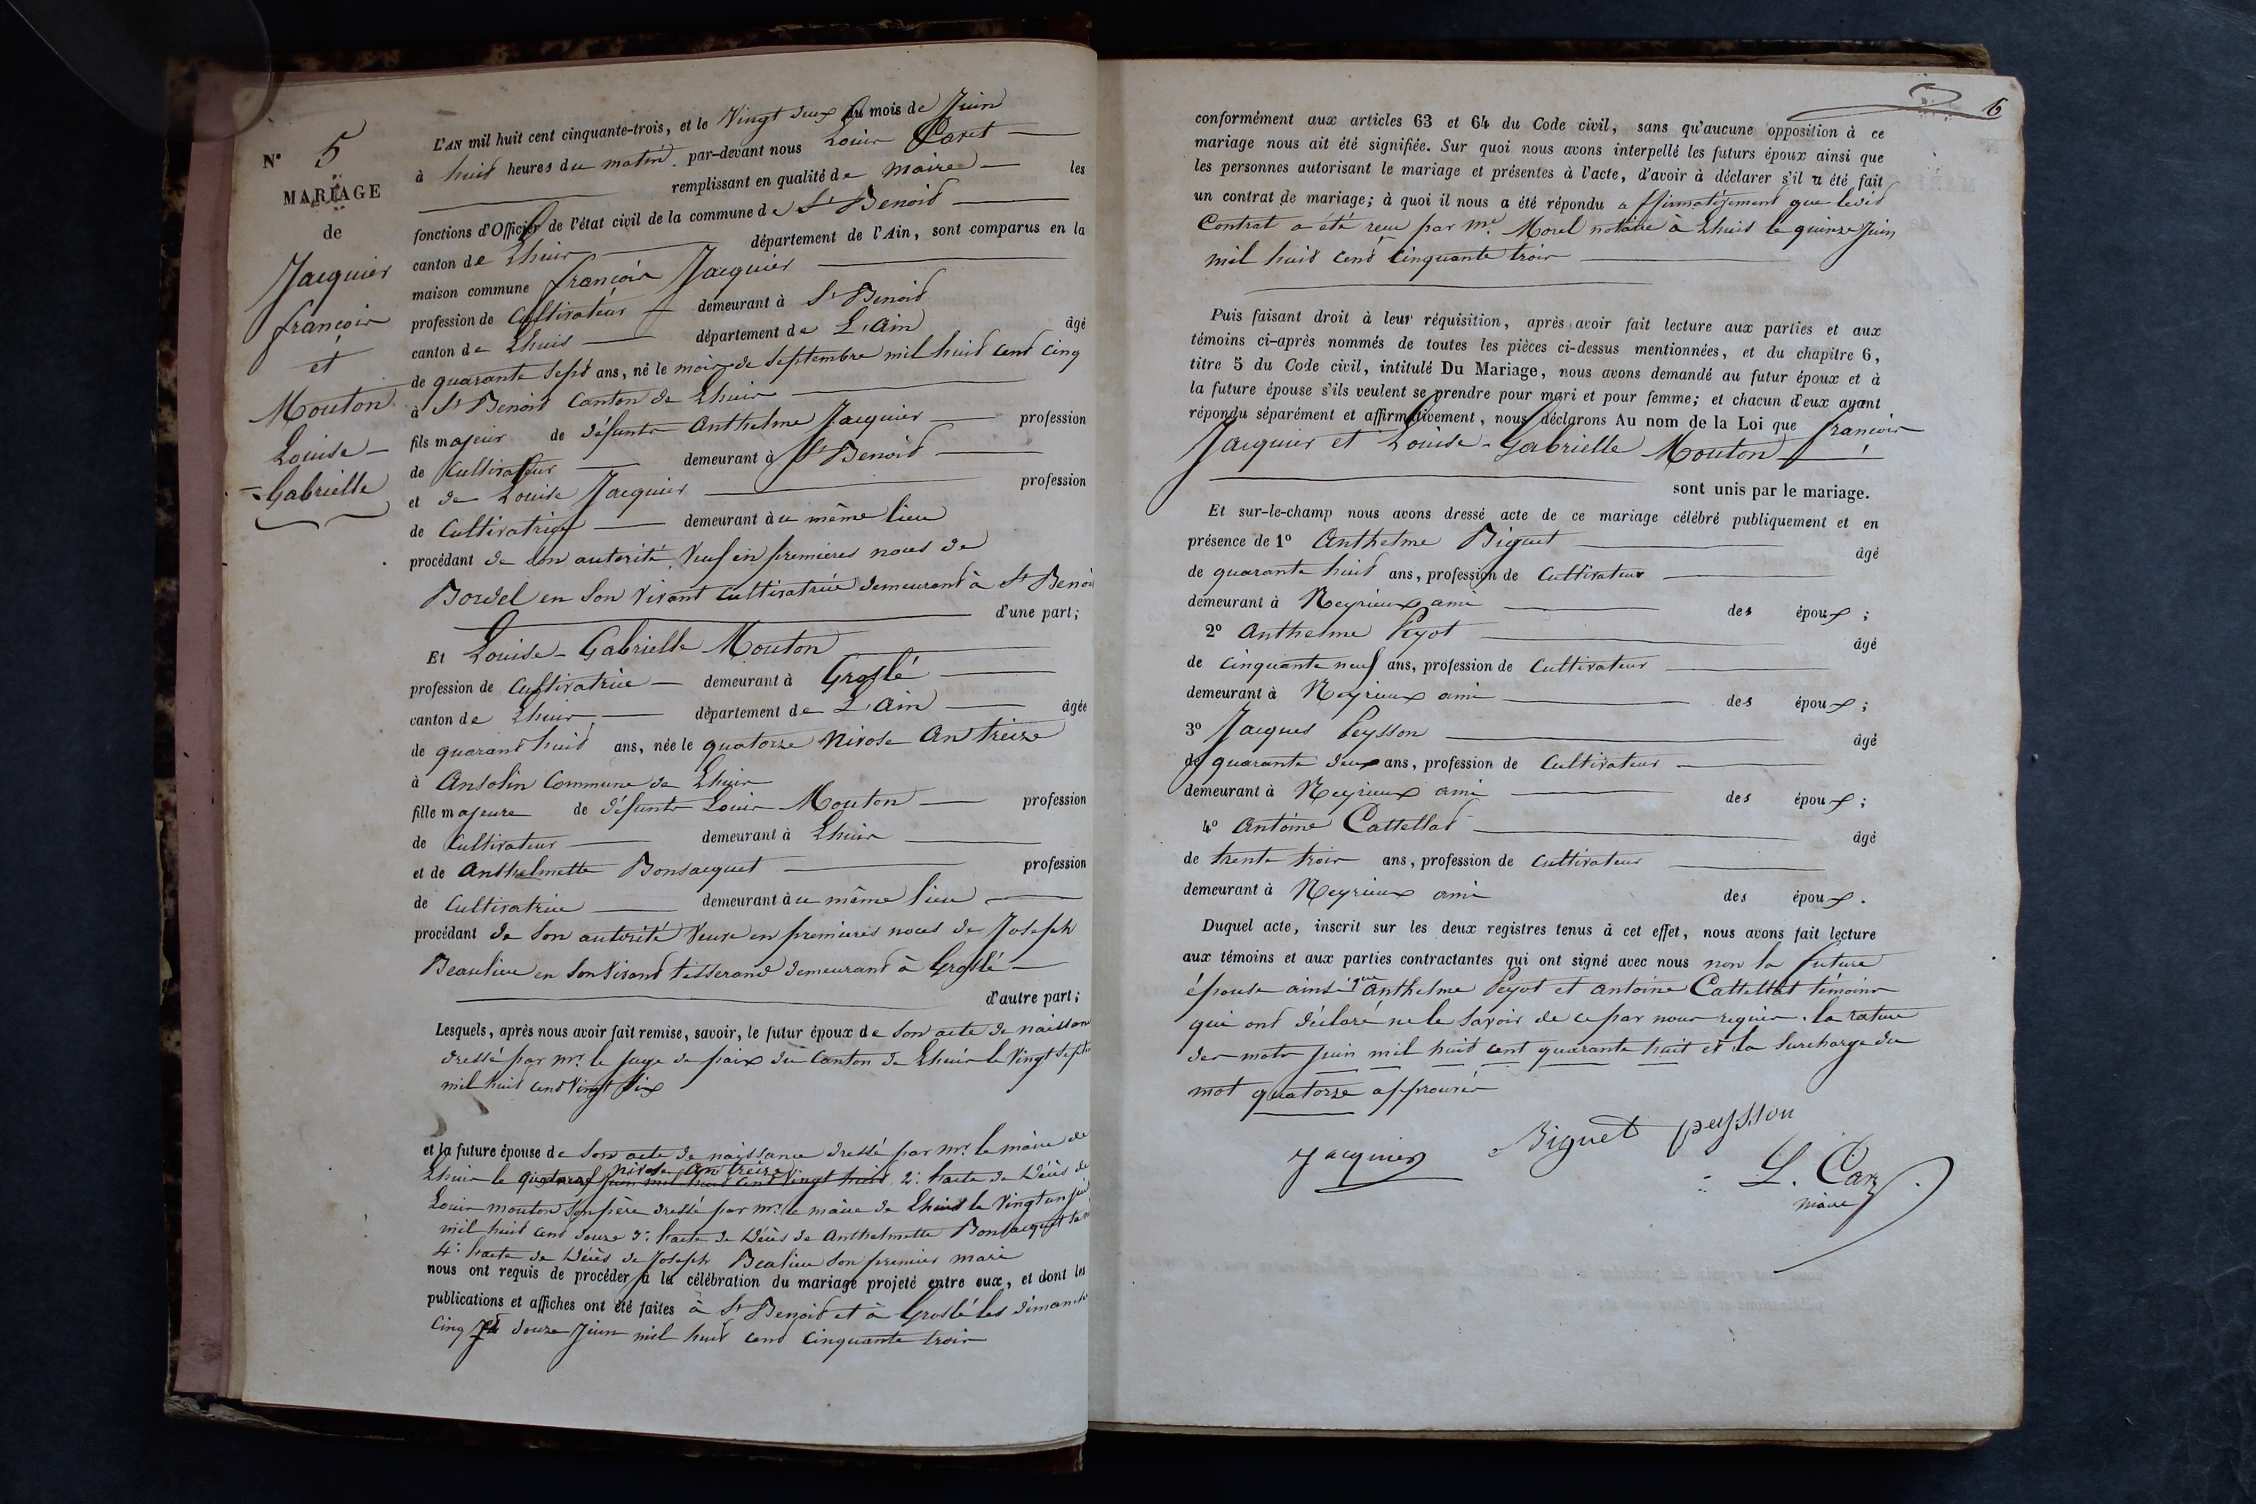 N° 5
MARIAGE
de
Jacquier
françois
et
Mouton
Louise -
- Gabrielle
L'AN mil huit cent cinquante-trois, et le Vingt deux du mois de Juin
à huit heures du matin par-devant nous Louis Caret
remplissant en qualité de Maire les
fonctions d'Officier de l'état civil de la commune de St Benoit
canton de Lhuis département de l'Ain, sont comparus en la
maison commune françois Jacquier
profession de Cultivateur demeurant à St Benoit
canton de Lhuis département de L'ain âgé
de quarante Sept ans, né le mois de Septembre mil huit cent cinq
à St Benoit Canton de Lhuis
fils majeur de défunts Anthelme Jacquier profession
de Cultivateur demeurant à St Benoit
et de Louise Jacquier profession
de Cultivatrice demeurant à u même lieu
procédant de son autorité, Veuf en premières noces de
Bordel en Son Vivant Cultivatrice demeurant à St Benoi
d'une part;
Et Louise - Gabrielle Mouton
profession de Cultivatrice demeurant à Groslé
canton de Lhuis département de L'ain âgée
de quarant huit ans, née le quatorze Nivose An treize
à Ansolin Commune de Lhuis
fille majeure de défunts Louis Mouton profession
de Cultivateur demeurant à Lhuis
et de Anthelmette Bonsacquet profession
de Cultivatrice demeurant à u même lieu
procédant de Son autorité Veuve en premières noces de Joseph
Beaulieu en Son Vivant tisserand demeurant à Groslé
d'autre part;
Lesquels, après nous avoir fait remise, savoir, le futur époux de Son acte de naissan
dressé par mr. le juge de paix du Canton de Lhuis le Vingt Sept
mil huit cent Vingt Six
et la future épouse de Son acte de naissance dressé par mr. le maire de
nivose An treize
Lhuis le quatorze juin mil huit cent Vingt huit 2° l'acte de Décès de
Louis mouton Son père dressé par mr. le maire de Lhuis le Vingt un
mil huit cent douze 3° l'acte de Décès de Anthelmette Bonsacquet
4° l'acte de Décès de Joseph Bealieu Son premier mari
nous ont requis de procéder à la célébration du mariage projeté entre eux, et dont les
publications et affiches ont été faites à St Benoit et à Groslé les dimanch
Cinq et douze Juin mil huit cent Cinquante trois
6
conformément aux articles 63 et 64 du Code civil, sans qu'aucune opposition à ce
mariage nous ait été signifiée. Sur quoi nous avons interpellé les futurs époux ainsi que
les personnes autorisant le mariage et présentes à l'acte, d'avoir à déclarer s'il a été fait
un contrat de mariage; à quoi il nous a été répondu affirmativement que ledit
Contrat a été reçu par Me. Morel notaire à Lhuis le quinze Juin
mil huit cent Cinquante trois
Puis faisant droit à leur réquisition, après avoir fait lecture aux parties et aux
témoins ci-après nommés de toutes les pièces ci-dessus mentionnées, et du chapitre 6,
titre 5 du Code civil, intitulé Du Mariage, nous avons demandé au futur époux et à
la future épouse s'ils veulent se prendre pour mari et pour femme; et chacun d'eux ayant
répondu séparément et affirmativement, nous déclarons Au nom de la Loi que françois
Jacquier et Louise - Gabrielle Mouton
sont unis par le mariage.
Et sur-le-champ nous avons dressé acte de ce mariage célébré publiquement et en
présence de 1° Anthelme Biguet âgé
de quarante huit ans, profession de Cultivateur
demeurant à Neyrieux ami des époux;
2° Anthelme Peyot âgé
de Cinquante neuf ans, profession de Cultivateur
demeurant à Neyrieux ami des époux;
3° Jacques Peysson âgé
de quarante deux ans, profession de Cultivateur
demeurant à Neyrieux ami des époux;
4° Antoine Cattellat âgé
de trente trois ans, profession de Cultivateur
demeurant à Neyrieux ami des époux.
Duquel acte, inscrit sur les deux registres tenus à cet effet, nous avons fait lecture
aux témoins et aux parties contractantes qui ont signé avec nous non la future
épouse ainsi que Anthelme Peyot et Antoine Cattellat témoins
qui ont déclaré ne le Savoir de ce par nous requis. la rature
des mots juin mil huit cent quarante huit et la Surcharge du
mot quatorze approuvés
Jacquier Biguet peysson
L. Caret
maire